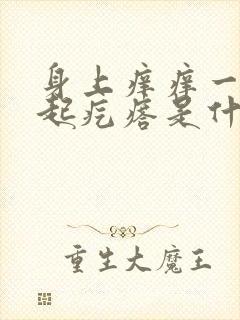 身上痒痒一
起疙瘩是什
重生大魔王